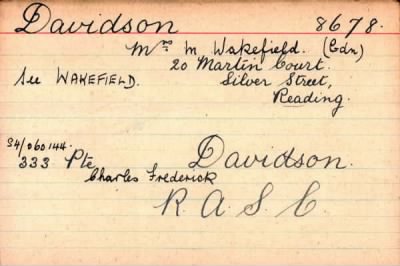 Davidson 8678.
Mrs M Wakefield. (Gdn)
20 Martin Court.
See WAKEFIELD. Silver Street,
Reading.
S4/060144.
333 Pte Davidson.
Charles Frederick
R. A. S. C.